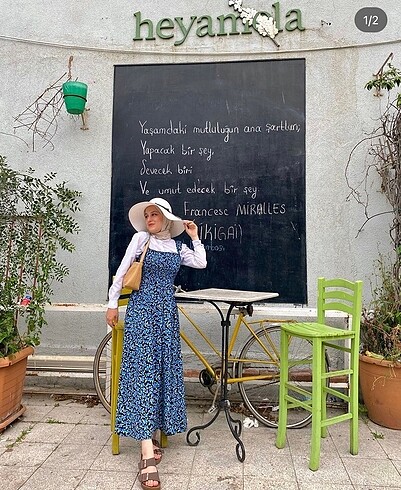 1/2
heyamola
Yaşamdaki mutluluğun ana şartları;
Yapacak bir şey,
Sevecek biri
Ve umut edecek bir şey.
Francesc MIRALLES
(IKIGAI)